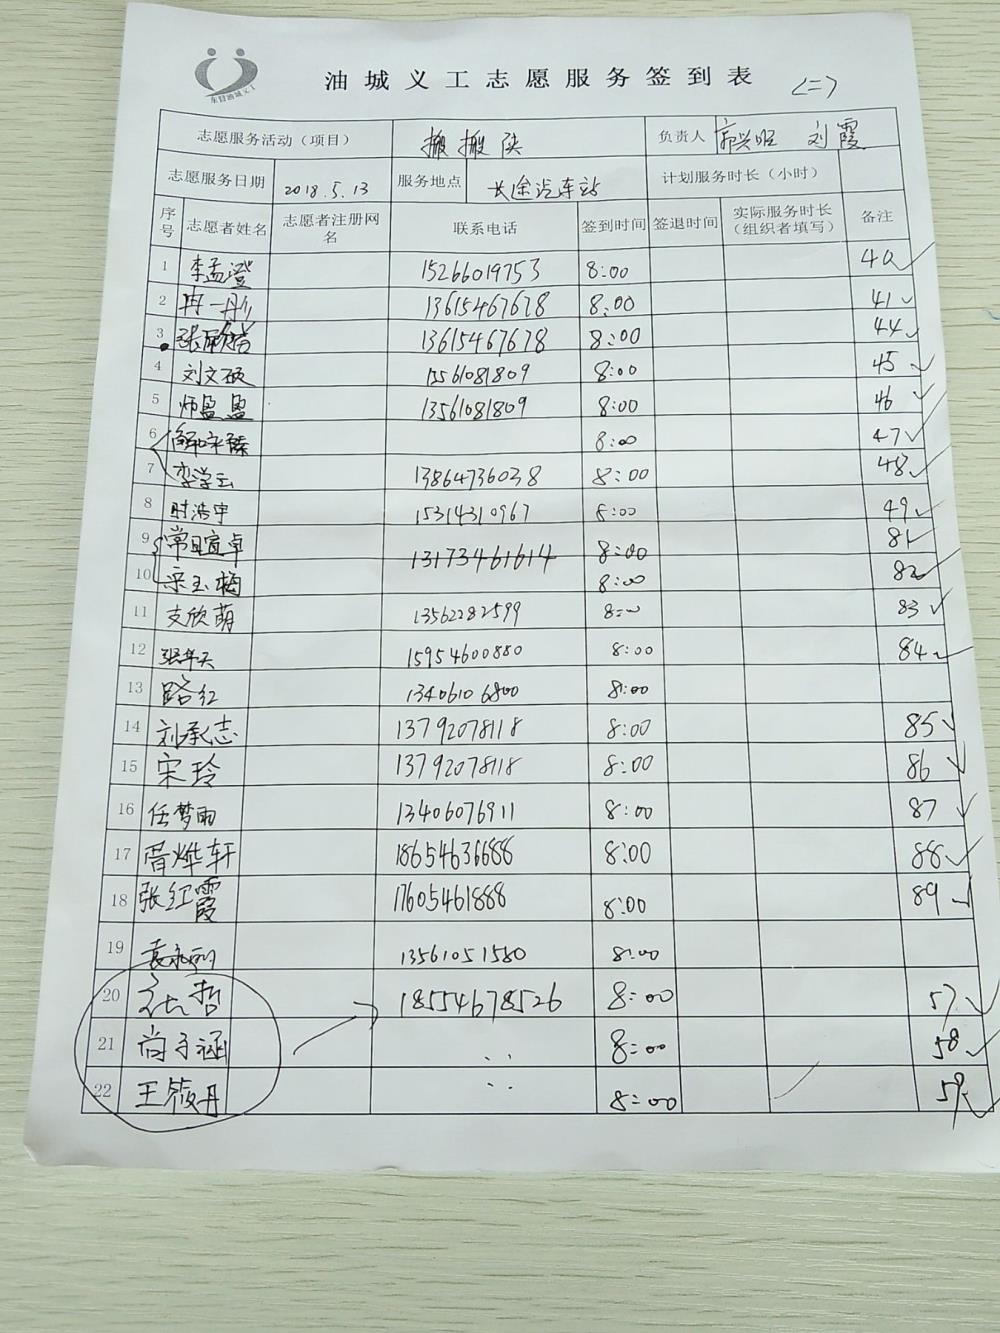 东营油城义工
油城义工志愿服务签到表 <二>
志愿服务活动（项目） 搬搬侠 负责人 刘霞
志愿服务日期 2018.5.13 服务地点 长途汽车站 计划服务时长（小时）
序号 志愿者姓名 志愿者注册网名 联系电话 签到时间 签退时间 实际服务时长（组织者填写） 备注
1 李孟澄 15266019753 8:00 40
2 冉一彤 13615467678 8:00 41
3 13615467678 8:00 44
4 刘文硕 8:00 45
5 师盈盈 13561081809 8:00 46
6 8:00 47
7 李学玉 13864736038 8:00 48
8 时浩宇 15314310967 8:00 49
9 常宣卓 13173461614 8:00 81
10 宋玉梅 8:00 82
11 支欣萌 13562282599 8:00 83
12 15954600880 8:00 84
13 路红 13406106800 8:00
14 刘承志 13792078118 8:00 85
15 宋玲 13792078118 8:00 86
16 任梦雨 13406076911 8:00 87
17 晋烨轩 18654636688 8:00 88
18 张红霞 17605461888 8:00 89
19 袁永利 13561051580 8:00
20 18554678526 8:00 57
21 尚子涵 8:00 58
22 王筱丹 8:00 59